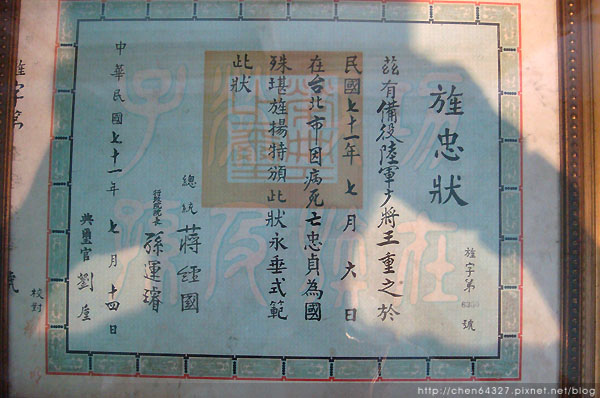 旌忠狀
旌字第
號
茲有備役陸軍少將王重之於
民國七十一年七月六日
在台北市因病死亡忠貞為國
殊堪旌揚特頒此狀永垂式範
此狀
總統 蔣經國
行政院院長 孫運璿
典璽官 劉垕
中華民國七十一年七月十四日
校對
http://chen64327.pixnet.net/blog